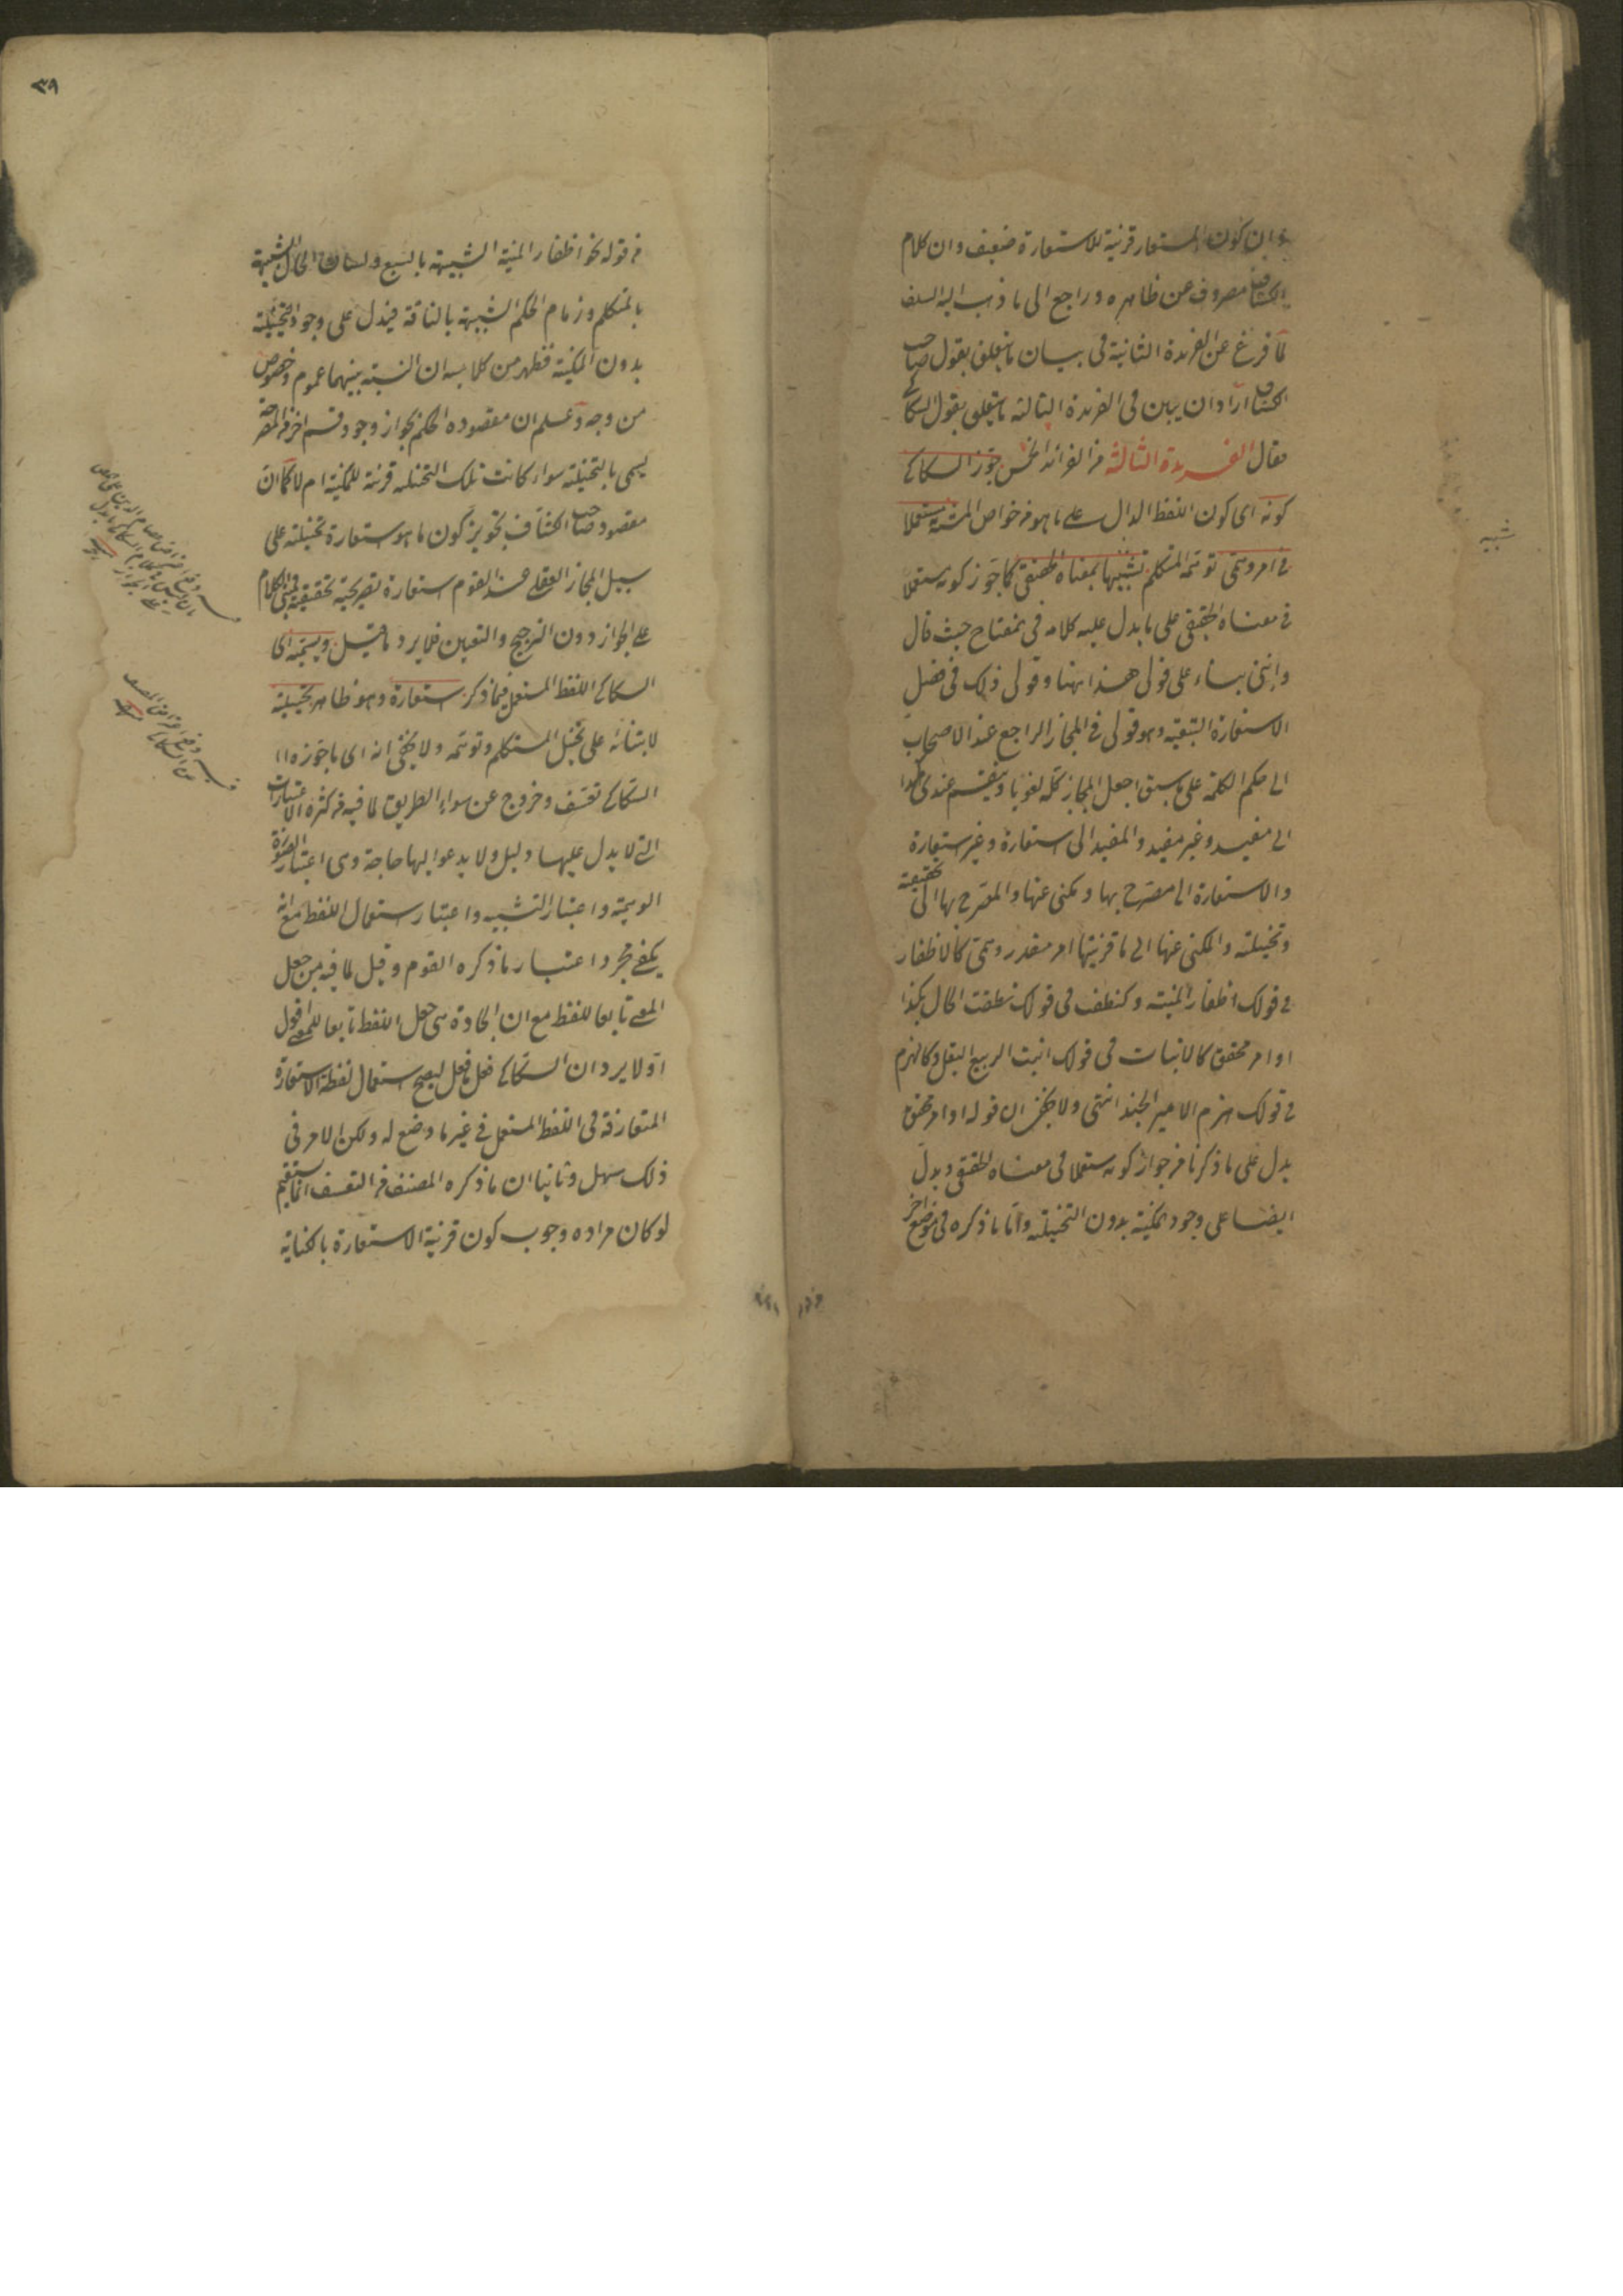 وان كون المستعار قرينة للاستعارة ضعيف وان كلام
الكشاف مصروف عن ظاهره وراجع الى ما ذهب اليه السلف
لما فرغ عن الفريدة الثانية فى بيان ما يتعلق بقول صاحب
الكشاف اراد ان يبين فى الفريدة الثالثة ما يتعلق بقول السكاكى
فقال الفريدة الثالثة من الفرائد الخمس جوز السكاكى
كونه اى كون اللفظ الدال على ما هو من خواص المشبه به مستعملا
فى امر وهمى توهمه المتكلم تشبيها بمعناه الحقيقى كما جوز كونه مستعملا
فى معناه الحقيقى على ما يدل عليه كلامه فى مفتاح حيث قال
وانى بناء على قولى هذا ههنا وقولى ذلك فى فصل
الاستعارة التبعية وهو قولى فى المجاز الراجع عند الاصحاب
الى حكم الكلمة على ما سبق اجعل المجاز كله لغويا وينقسم عندى هكذا
الى مفيد وغير مفيد والمفيد الى استعارة وغير استعارة
والاستعارة الى مصرح بها ومكنى عنها والمصرح بها الى تحقيقية
وتخييلية والمكنى عنها الى ما قرينتها امر مقدر وهمى كالاظفار
فى قولك اظفار المنية وكنطقت فى قولك نطقت الحال بكذا
او امر محقق كالانبات فى قولك انبت الربيع البقل وكالهزم
فى قولك هزم الامير الجند انتهى ولا يخفى ان قوله او امر محقق
يدل على ما ذكرنا من جواز كونه مستعملا فى معناه الحقيقى ويدل
ايضا على وجود المكنية بدون التخييلية واما ما ذكره فى موضع اخر
شبيه
٣٩
من قوله نحو اظفار المنية الشبيهة بالسبع ولسان الحال الشبيهة
بالمتكلم وزمام الحكم الشبيهة بالناقة فيدل على وجود التخييلية
بدون المكنية فظهر من كلاميه ان النسبة بينهما عموم وخصوص
من وجه وعلم ان مقصوده الحكم بجواز وجود قسم اخر من المصرحة
يسمى بالتخييلية سواء كانت تلك التخييلية قرينة للمكنية ام لا كما ان
مقصود صاحب الكشاف تجويز كون ما هو استعارة تخييلية على
سبيل المجاز العقلى عند القوم استعارة تصريحية تحقيقية فمبنى الكلام
على الجواز دون الترجيح والتعيين فلا يرد ما قيل ويسميه اى
السكاكى اللفظ المستعمل فيما ذكر استعارة وهو ظاهر تخييلية
لابتنائه على تخيل المتكلم وتوهمه ولا يخفى انه اى ما جوزه
السكاكى تعسف وخروج عن سواء الطريق لما فيه من كثرة الاعتبارات
التى لا يدل عليها دليل ولا يدعو اليها حاجة وهى اعتبار الصورة
الوهمية واعتبار التشبيه واعتبار استعمال اللفظ مع انه
يكفى مجرد اعتبار ما ذكره القوم وقيل لما فيه من جعل
المعنى تابعا للفظ مع ان الجادة هى جعل اللفظ تابعا للمعنى اقول
اولا يرد ان السكاكى فعل ما فعل ليصح استعمال لفظة الاستعارة
المتعارفة فى اللفظ المستعمل فى غير ما وضع له ولكن الامر فى
ذلك سهل وثانيا ان ما ذكره المصنف من التعسف انما يستقيم
لو كان مراده وجوب كون قرينة الاستعارة بالكناية